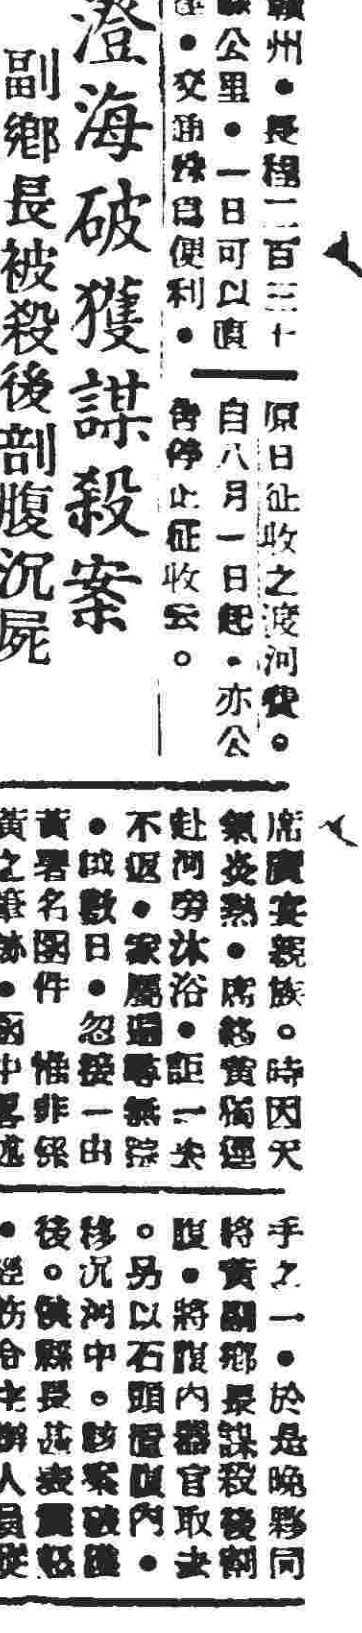 贛州●長程二百三十
公里●一日可以直
交通殊為便利●
原日征收之渡河費。
自八月一日起●亦公
告停止征收云。
澄海破獲謀殺案
副鄉長被殺後剖腹沉屍
席讌宴親族。時因天
氣炎熱●席終黃獨逕
赴河旁沐浴●詎一去
不返●家屬遍尋無踪
●成數日●忽接一由
黃署名函件 惟非係
黃之筆跡●函中畧述
手之一●於是晚夥同
將黃副鄉長謀殺後剖
腹●將腹內器官取去
。另以石頭置腹內●
移沉河中。該案破獲
後。縣長甚表震怒
●經飭令主辦人員從